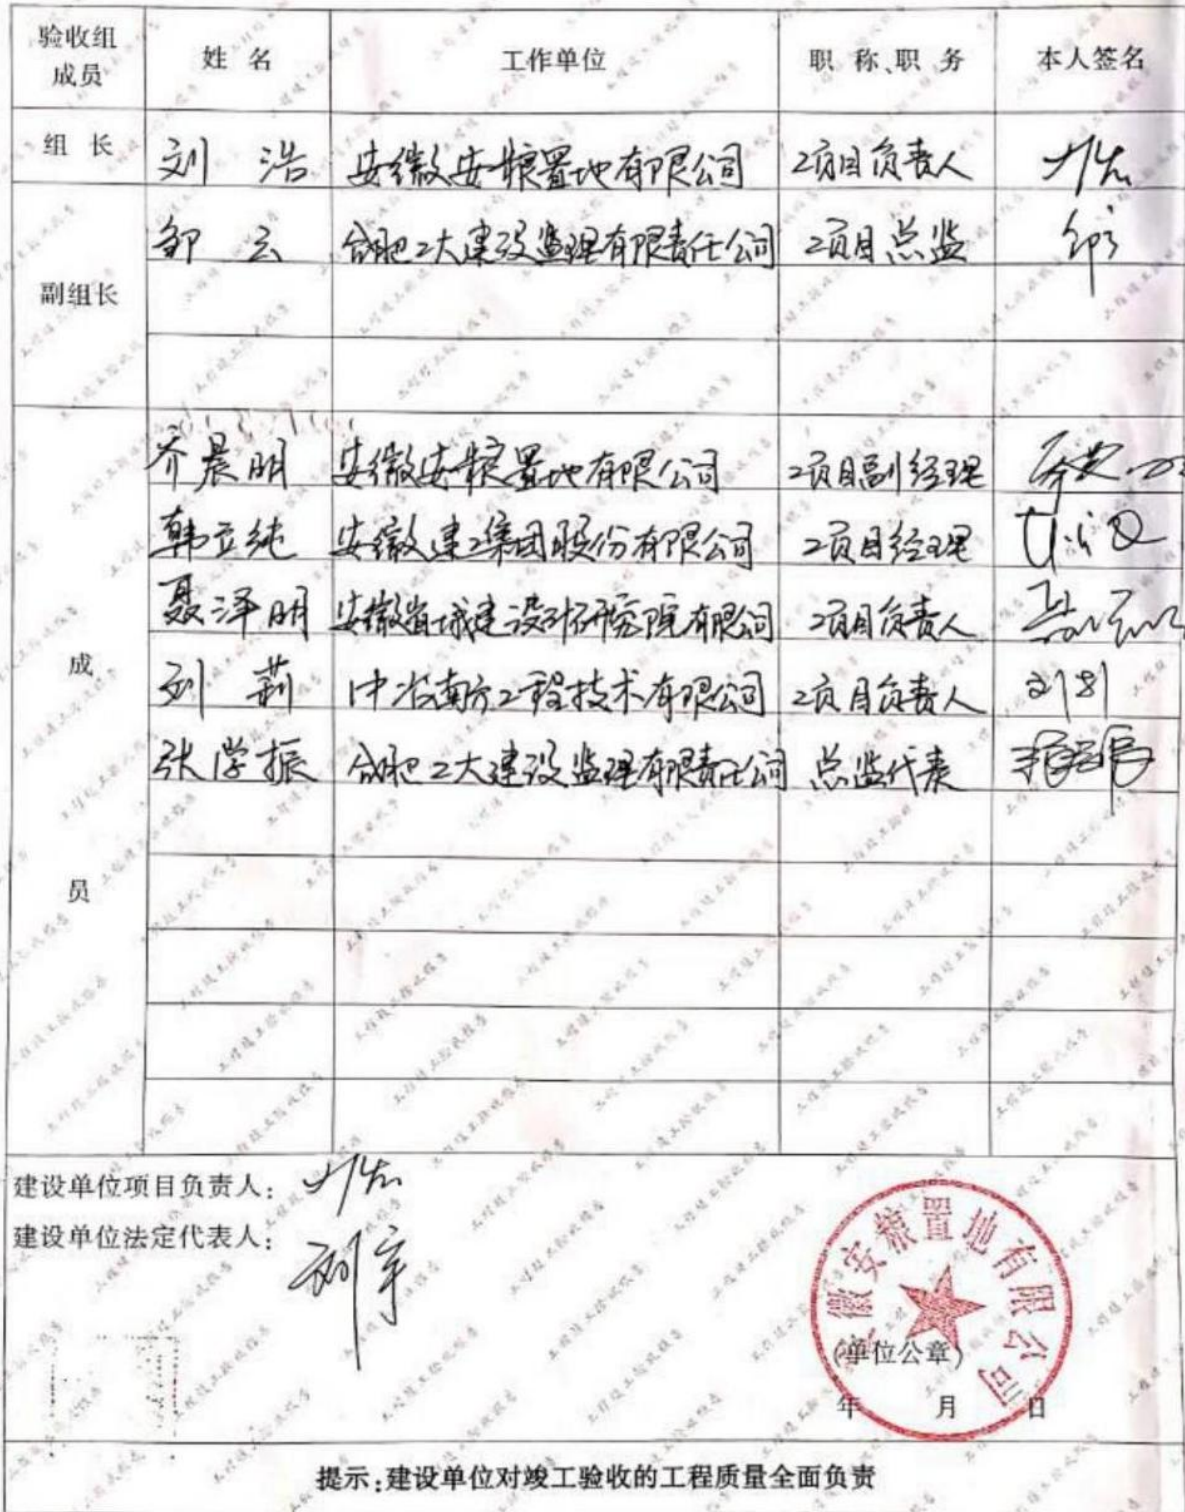 验收组成员 姓 名 工作单位 职 称、职 务 本人签名
组 长 刘 浩 安徽安粮置地有限公司 项目负责人
副组长 邹 云 合肥工大建设监理有限责任公司 项目总监
乔晨明 安徽安粮置地有限公司 项目副经理
韩立纯 安徽建工集团股份有限公司 项目经理
聂泽明 安徽省城建设计研究院有限公司 项目负责人
成员 刘 莉 中冶南方工程技术有限公司 项目负责人 刘莉
张学振 合肥工大建设监理有限责任公司 总监代表 张学振
建设单位项目负责人:
建设单位法定代表人:
安徽安粮置地有限公司
(单位公章)
年 月 日
提示:建设单位对竣工验收的工程质量全面负责
工程竣工验收报告